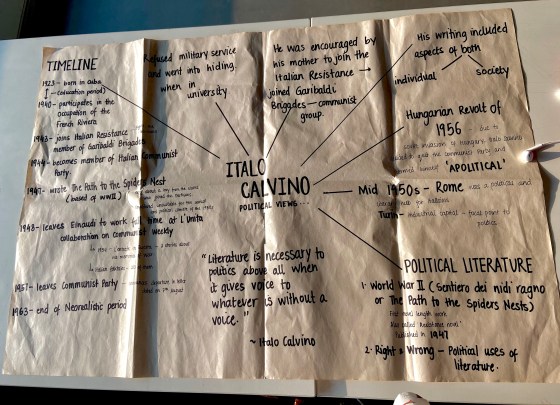 TIMELINE
1923 - born in Cuba
(education period)
1940 - participates in the
occupation of the
French Riviera
1943 - joins Italian Resistance
member of Garibaldi Brigades
1944 - becomes member of Italian Communist
Party.
1947 - wrote The Path to the Spiders Nest
(based of WWII)
1948 - leaves Einaudi to work full time at L'Unita
collaboration on communist weekly
1957 - leaves Communist Party
1963 - end of Neorealistic period
Refused military service
and went into hiding.
when in
university
He was encouraged by
his mother to join the
Italian Resistance →
joined Garibaldi
Brigades - communist
group.
His writing included
aspects of both
individual society
Hungarian Revolt of
1956
'APOLITICAL'
ITALO
CALVINO
POLITICAL VIEWS...
Mid 1950s - Rome was a political and
Turin - industrial capital - focal point for
politics
"Literature is necessary to
politics above all when
it gives voice to
whatever is without a
voice."
~ Italo Calvino
POLITICAL LITERATURE
1. World War II (Sentiero dei nidi ragno
or The Path to the Spiders Nests)
First novel length work
Also called 'Neorealist novel'
Published in 1947
2. Right & Wrong - Political uses of
literature.